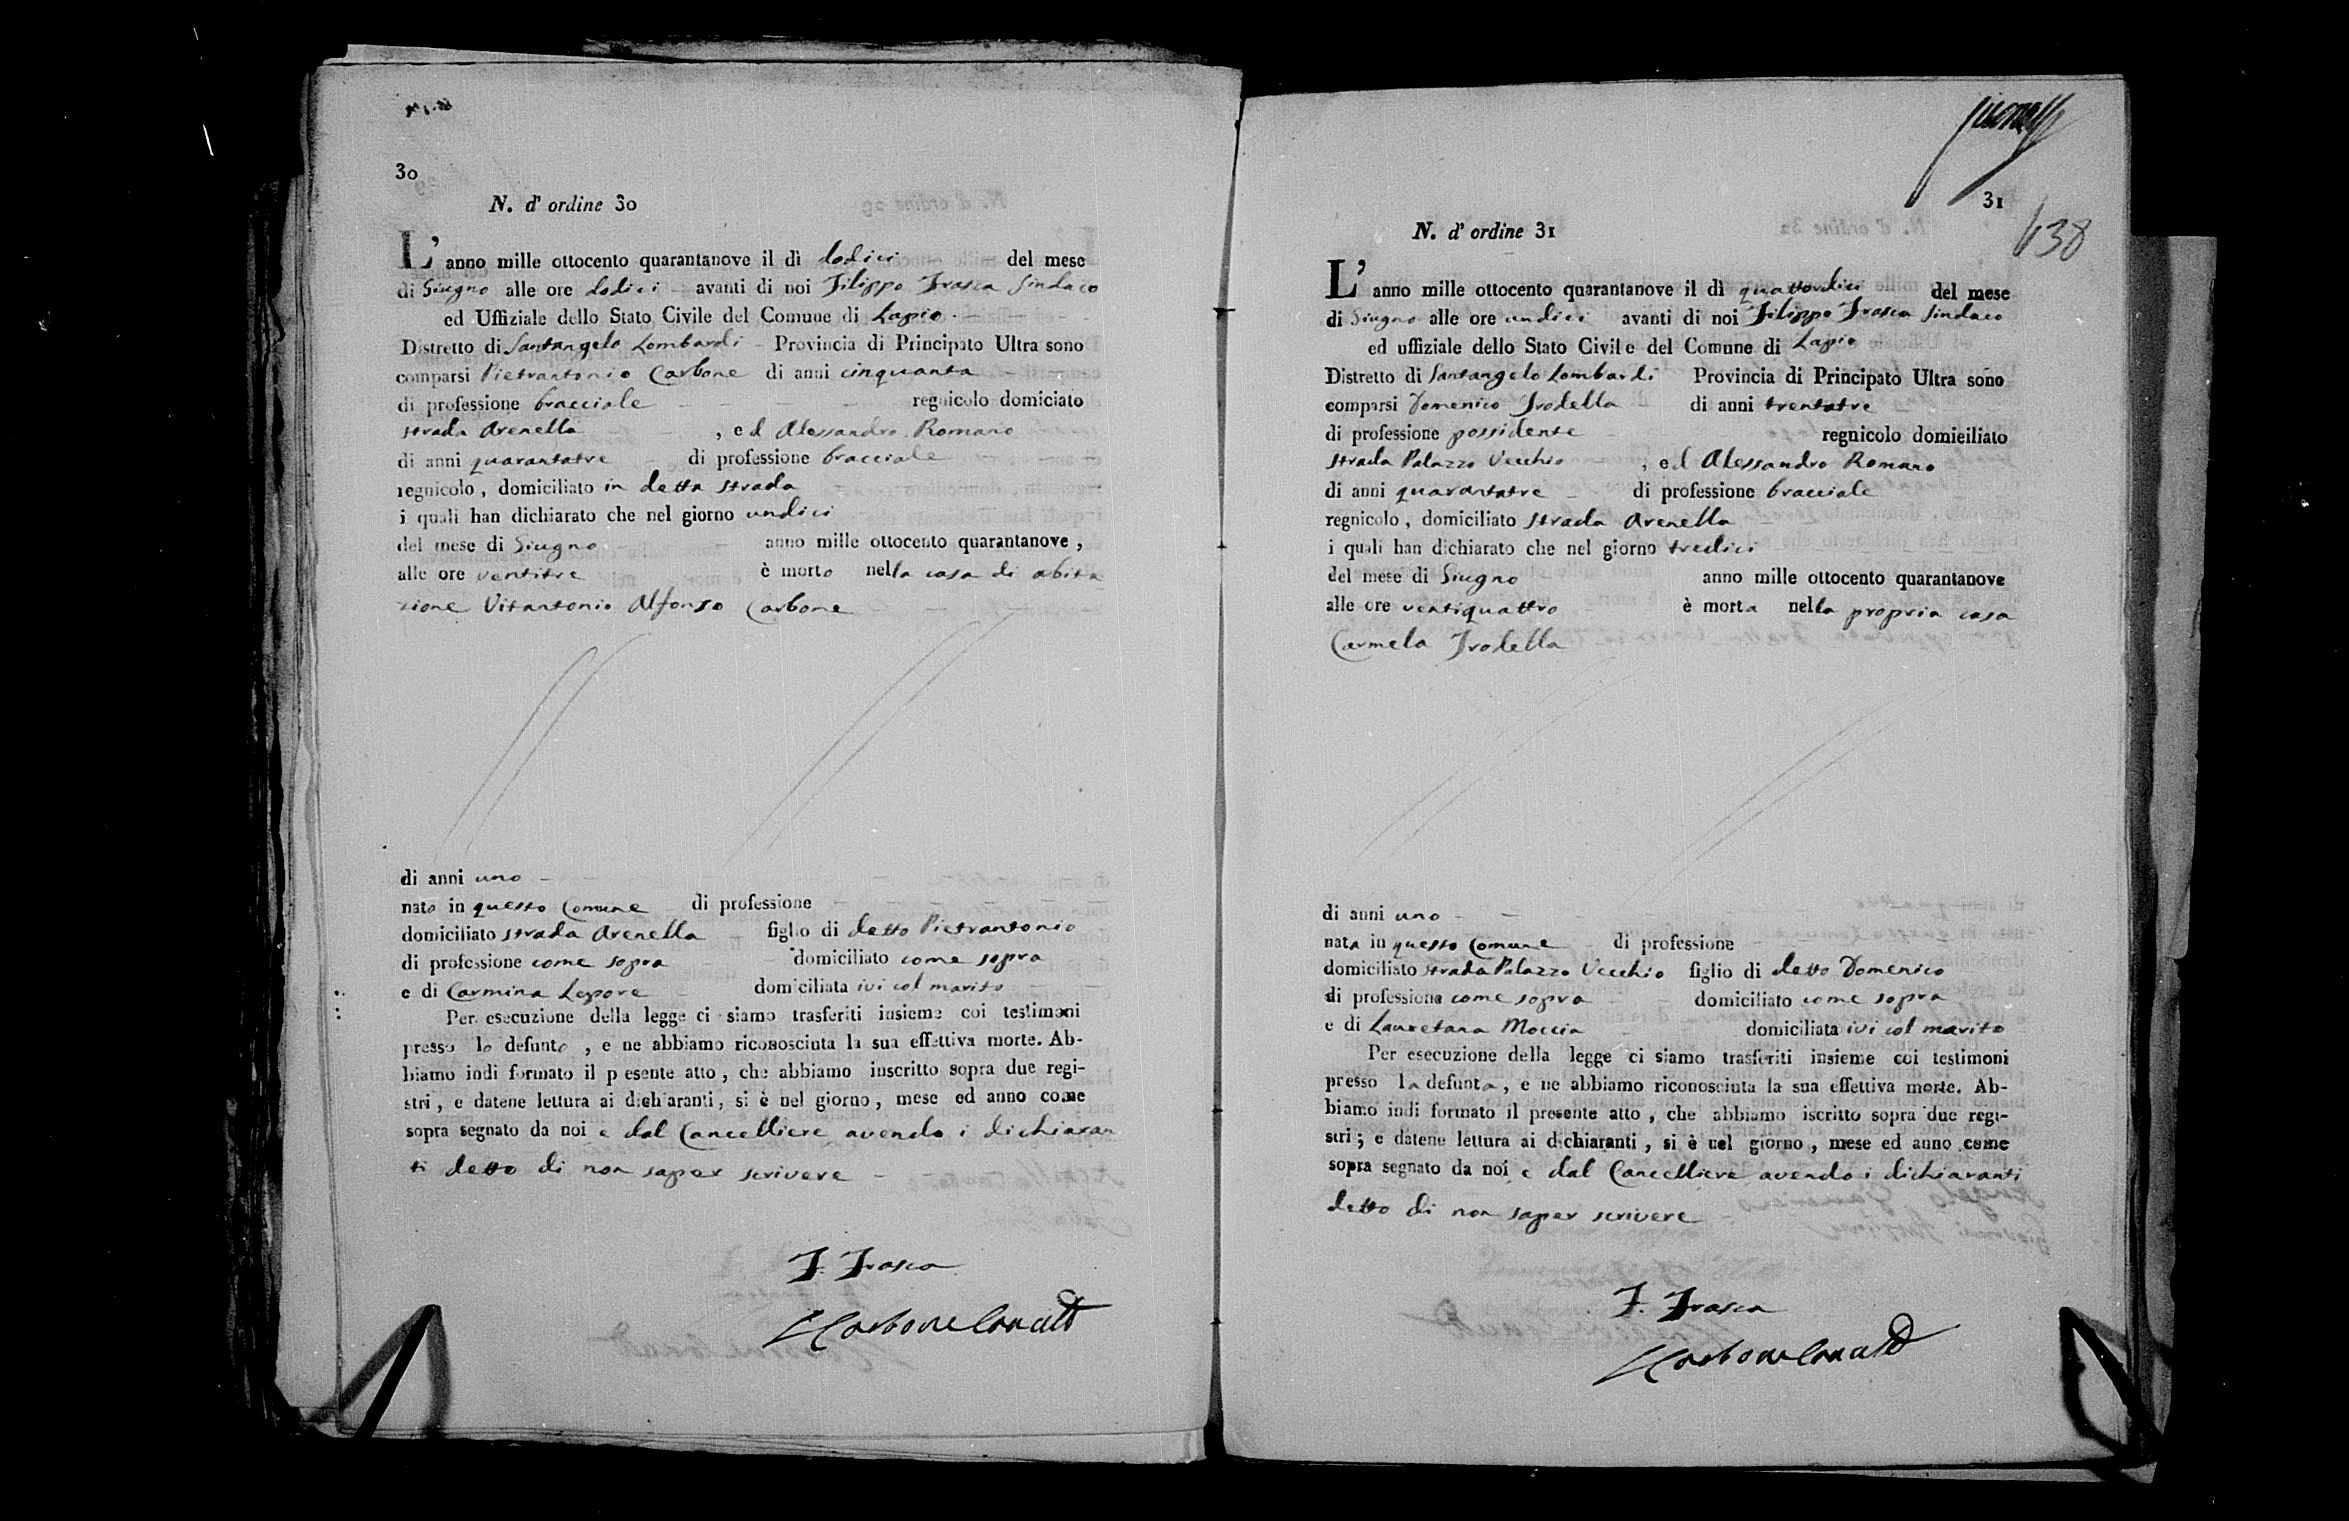 30
N. d' ordine 30
L' anno mille ottocento quarantanove il dì dodici del mese
di Giugno alle ore dodici avanti di noi Filippo Frasca Sindaco
ed Uffiziale dello Stato Civile del Comune di Lapio
Distretto di Santangelo Lombardi Provincia di Principato Ultra sono
comparsi Pietrantonio Carbone di anni cinquanta
di professione bracciale regnicolo domiciato
strada Arenella , ed Alessandro Romano
di anni quarantatre di professione bracciale
regnicolo, domiciliato in detta strada
i quali han dichiarato che nel giorno undici
del mese di Giugno anno mille ottocento quarantanove,
alle ore ventitre è morto nella casa di abita
zione Vitantonio Alfonso Carbone
di anni uno
nato in questo Comune di professione
domiciliato strada Arenella figlio di detto Pietrantonio
di professione come sopra domiciliato come sopra
e di Carmina Lepore domiciliata ivi col marito
Per esecuzione della legge ci siamo trasferiti insieme coi testimoni
presso lo defunto, e ne abbiamo riconosciuta la sua effettiva morte. Ab-
biamo indi formato il p esente atto, che abbiamo inscritto sopra due regi-
stri, e datene lettura ai dichiaranti, si è nel giorno, mese ed anno come
sopra segnato da noi e dal Cancelliere avendo i dichiaran
ti detto di non saper scrivere
F. Frasca
Carbone
31
138
N. d' ordine 31
L' anno mille ottocento quarantanove il dì quattordici del mese
di Giugno alle ore undici avanti di noi Filippo Frasca Sindaco
ed uffiziale dello Stato Civile del Comune di Lapio
Distretto di Santangelo Lombardi Provincia di Principato Ultra sono
comparsi Domenico Frodella di anni trentatre
di professione possidente regnicolo domiciliato
strada Palazzo Vecchio , ed Alessandro Romano
di anni quarantatre di professione bracciale
regnicolo, domiciliato strada Arenella
i quali han dichiarato che nel giorno tredici
del mese di Giugno anno mille ottocento quarantanove
alle ore ventiquattro è morta nella propria casa
Carmela Frodella
di anni uno
nata in questo Comune di professione
domiciliato strada Palazzo Vecchio figlio di detto Domenico
di professione come sopra domiciliato come sopra
e di Lauretana Moccia domiciliata ivi col marito
Per esecuzione della legge ci siamo trasferiti insieme coi testimoni
presso la defunta, e ne abbiamo riconosciuta la sua effettiva morte. Ab-
biamo indi formato il presente atto, che abbiamo iscritto sopra due regi-
stri; e datene lettura ai dichiaranti, si è nel giorno, mese ed anno come
sopra segnato da noi e dal Cancelliere avendo i dichiaranti
detto di non saper scrivere
F. Frasca
Carbone